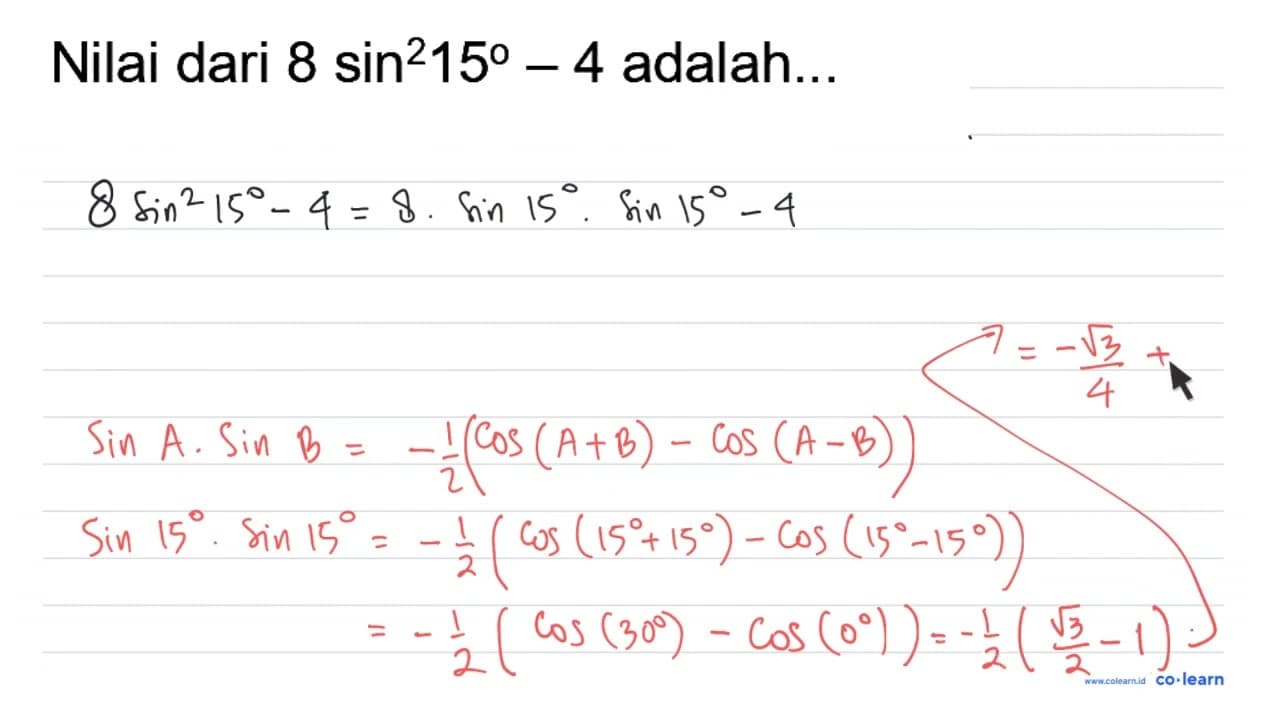 Nilai dari 8 sin²15° – 4 adalah...
8 Sin² 15° - 4 = 8 . Sin 15° . Sin 15° - 4
= -√3/4 +
Sin A . Sin B = -1/2 (Cos (A+B) - Cos (A-B))
Sin 15° . Sin 15° = -1/2 (Cos (15°+15°) - Cos (15°-15°))
= -1/2 (Cos (30°) - Cos (0°)) = -1/2 (√3/2 - 1) .
www.colearn.id co·learn